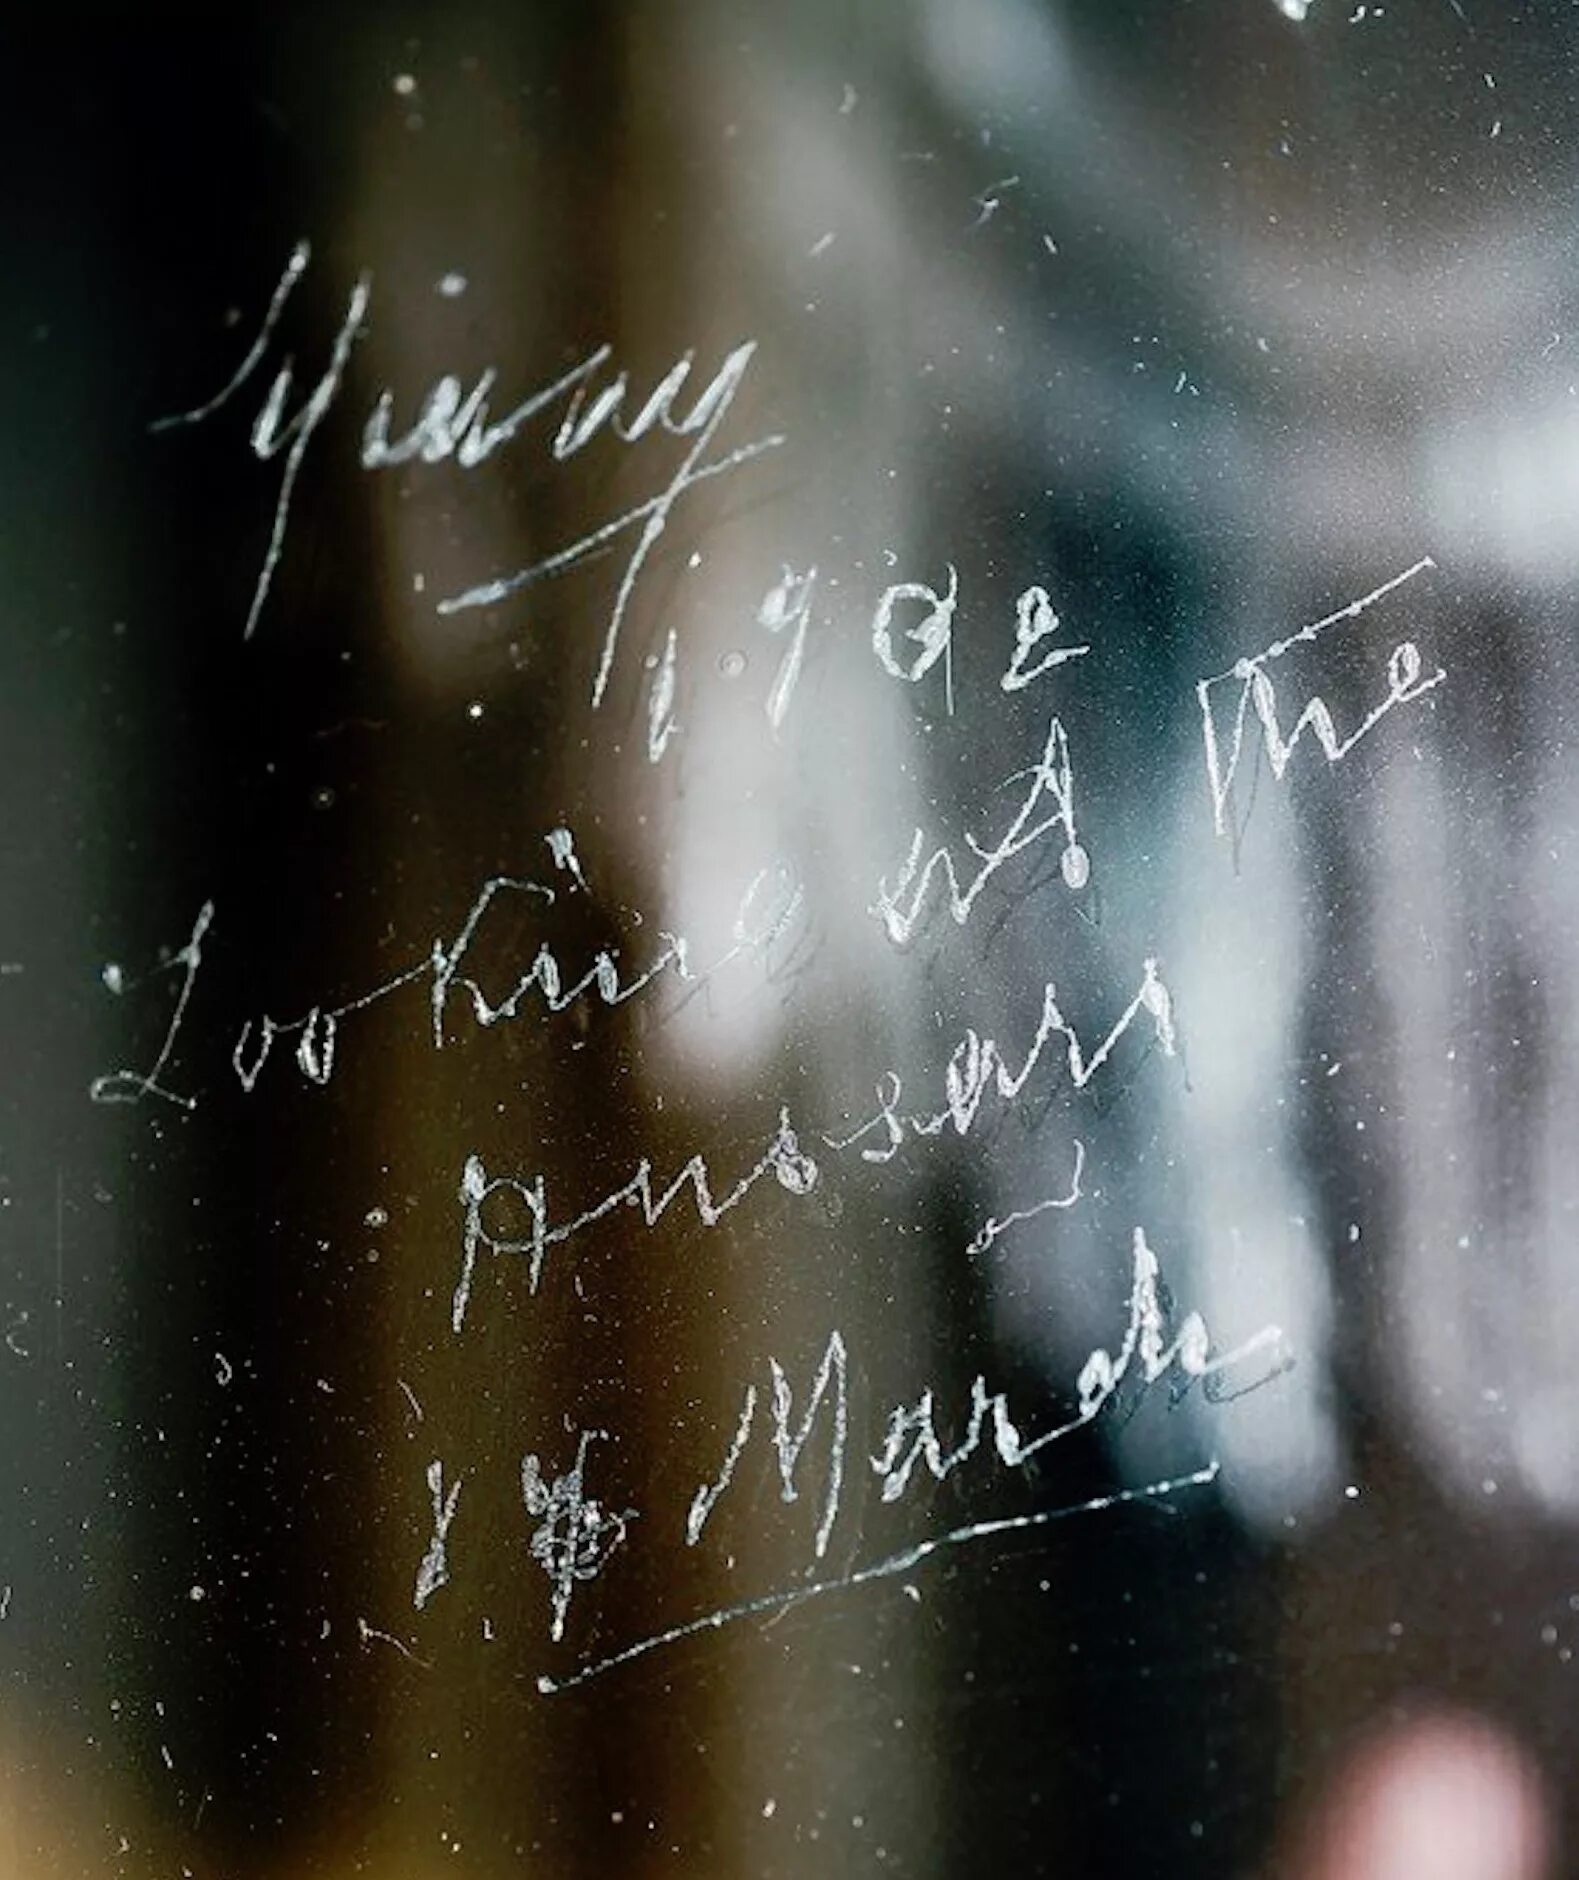 1902
Looking at The
Hussars
14 March